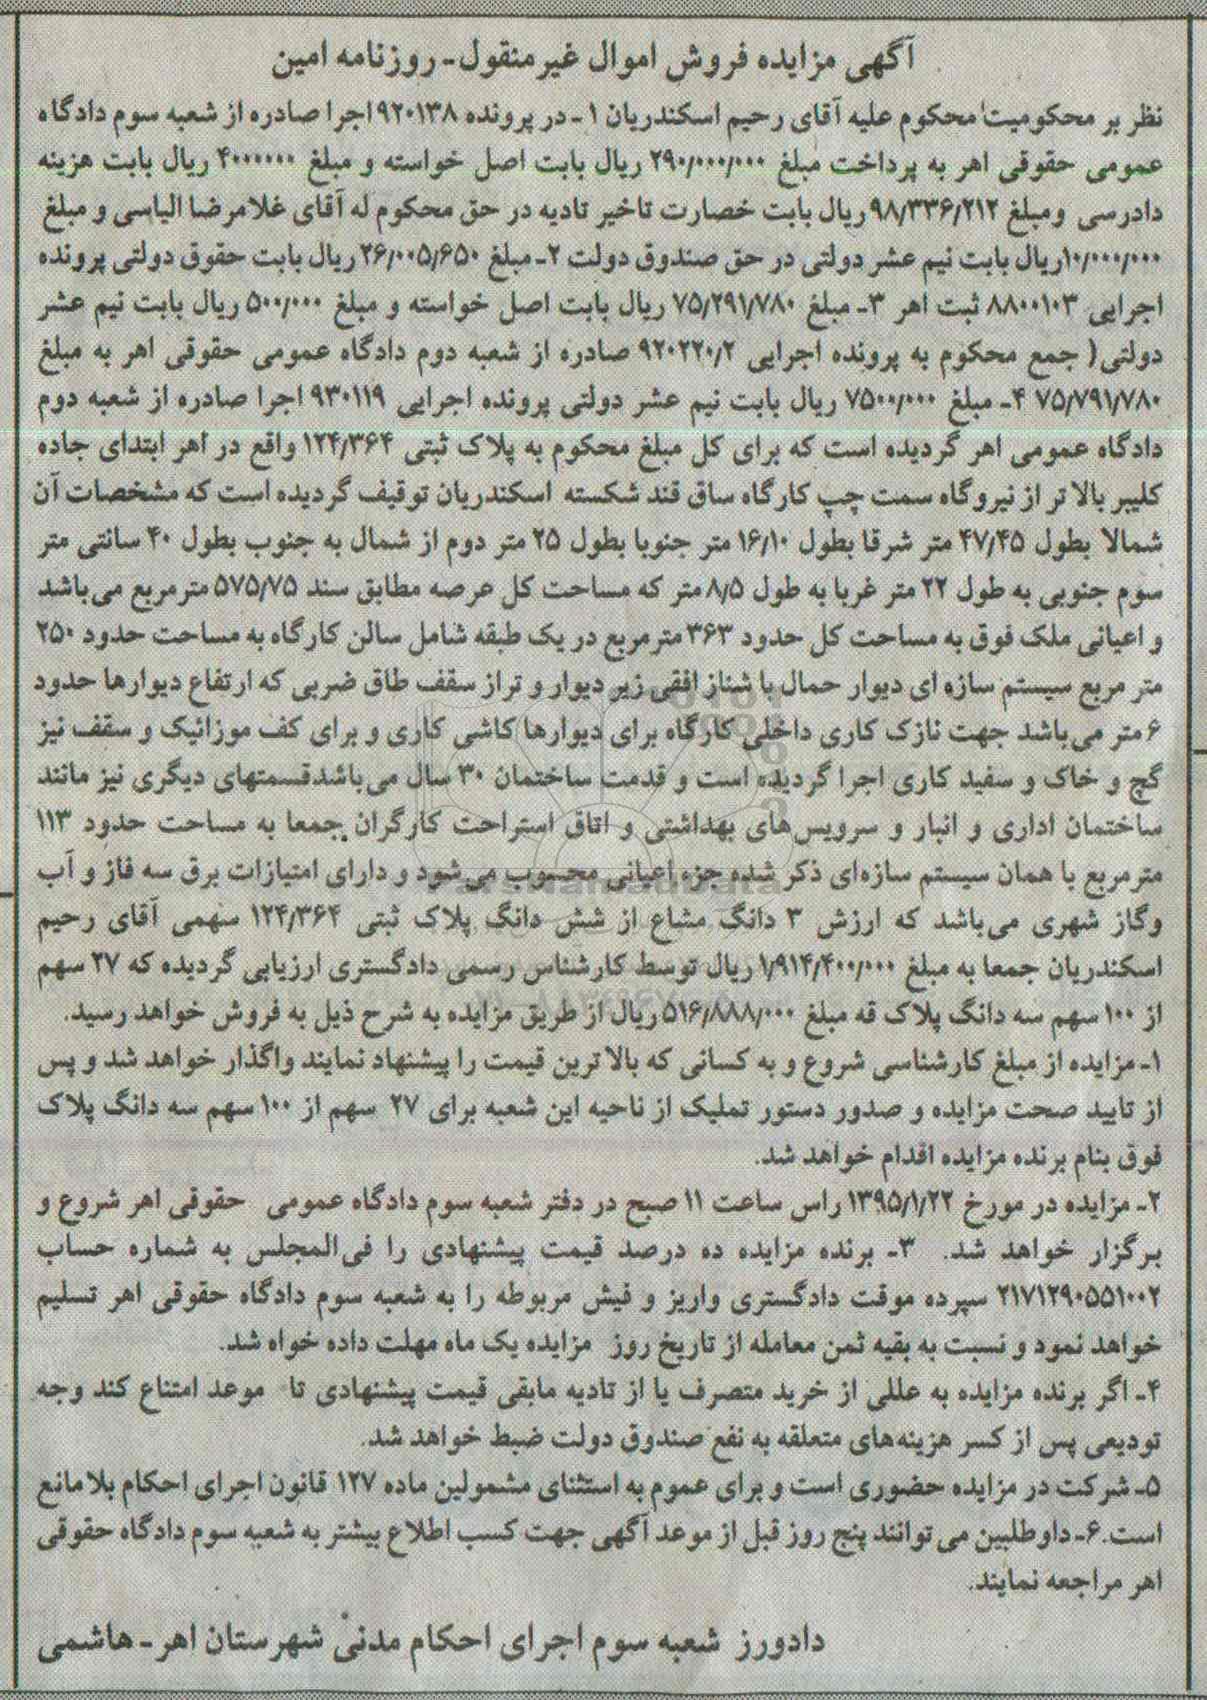 آگهی مزایده فروش اموال غیرمنقول-روزنامه امین
نظر بر محکومیت محکوم علیه آقای رحیم اسکندریان ۱- در پرونده ۹۲۰۱۳۸ اجرا صادره از شعبه سوم دادگاه
عمومی حقوقی اهر به پرداخت مبلغ ۲۹۰/۰۰۰/۰۰۰ ریال بابت اصل خواسته و مبلغ ۴۰۰۰۰۰۰ ریال بابت هزینه
دادرسی ومبلغ ۹۸/۳۳۶/۲۱۲ ریال بابت خصارت تاخیر تادیه در حق محکوم له آقای غلامرضا الیاسی و مبلغ
۱۰/۰۰۰/۰۰۰ریال بابت نیم عشر دولتی در حق صندوق دولت ۲-مبلغ ۲۶/۰۰۵/۶۵۰ ریال بابت حقوق دولتی پرونده
اجرایی ۸۸۰۰۱۰۳ ثبت اهر ۳- مبلغ ۷۵/۲۹۱/۷۸۰ ریال بابت اصل خواسته و مبلغ ۵۰۰/۰۰۰ ریال بابت نیم عشر
دولتی( جمع محکوم به پرونده اجرایی ۹۲۰۲۲۰/۲ صادره از شعبه دوم دادگاه عمومی حقوقی اهر به مبلغ
۷۵/۷۹۱/۷۸۰ ۴- مبلغ ۷۵۰۰/۰۰۰ ریال بابت نیم عشر دولتی پرونده اجرایی ۹۳۰۱۱۹ اجرا صادره از شعبه دوم
دادگاه عمومی اهر گردیده است که برای کل مبلغ محکوم به پلاک ثبتی ۱۲۴/۳۶۴ واقع در اهر ابتدای جاده
کلیبر بالا تر از نیروگاه سمت چپ کارگاه ساق قند شکسته اسکندریان توقیف گردیده است که مشخصات آن
شمالا بطول ۴۷/۴۵ متر شرقا بطول ۱۶/۱۰ متر جنوبا بطول ۲۵ متر دوم از شمال به جنوب بطول ۴۰ سانتی متر
سوم جنوبی به طول ۲۲ متر غربا به طول ۸/۵ متر که مساحت کل عرصه مطابق سند ۵۷۵/۷۵ مترمربع می‌باشد
و اعیانی ملک فوق به مساحت کل حدود ۳۶۳ مترمربع در یک طبقه شامل سالن کارگاه به مساحت حدود ۲۵۰
متر مربع سیستم سازه ای دیوار حمال با شناژ افقی زیر دیوار و تراز سقف طاق ضربی که ارتفاع دیوارها حدود
۶ متر می‌باشد جهت نازک کاری داخلی کارگاه برای دیوارها کاشی کاری و برای کف موزائیک و سقف نیز
گچ و خاک و سفید کاری اجرا گردیده است و قدمت ساختمان ۳۰ سال می‌باشدقسمتهای دیگری نیز مانند
ساختمان اداری و انبار و سرویس‌های بهداشتی و اتاق استراحت کارگران جمعا به مساحت حدود ۱۱۳
مترمربع با همان سیستم سازه‌ای ذکر شده جزء اعیانی محسوب می‌شود و دارای امتیازات برق سه فاز و آب
وگاز شهری می‌باشد که ارزش ۳ دانگ مشاع از شش دانگ پلاک ثبتی ۱۲۴/۳۶۴ سهمی آقای رحیم
اسکندریان جمعا به مبلغ ۱/۹۱۴/۴۰۰/۰۰۰ ریال توسط کارشناس رسمی دادگستری ارزیابی گردیده که ۲۷ سهم
از ۱۰۰ سهم سه دانگ پلاک قه مبلغ ۵۱۶/۸۸۸/۰۰۰ ریال از طریق مزایده به شرح ذیل به فروش خواهد رسید.
۱-مزایده از مبلغ کارشناسی شروع و به کسانی که بالا ترین قیمت را پیشنهاد نمایند واگذار خواهد شد و پس
از تایید صحت مزایده و صدور دستور تملیک از ناحیه این شعبه برای ۲۷ سهم از ۱۰۰ سهم سه دانگ پلاک
فوق بنام برنده مزایده اقدام خواهد شد.
۲- مزایده در مورخ ۱۳۹۵/۱/۲۲ راس ساعت ۱۱ صبح در دفتر شعبه سوم دادگاه عمومی حقوقی اهر شروع و
برگزار خواهد شد. ۳- برنده مزایده ده درصد قیمت پیشنهادی را فی‌المجلس به شماره حساب
۲۱۷۱۲۹۰۵۵۱۰۰۲ سپرده موقت دادگستری واریز و فیش مربوطه را به شعبه سوم دادگاه حقوقی اهر تسلیم
خواهد نمود و نسبت به بقیه ثمن معامله از تاریخ روز مزایده یک ماه مهلت داده خواه شد.
۴- اگر برنده مزایده به عللی از خرید متصرف یا از تادیه مابقی قیمت پیشنهادی تا موعد امتناع کند وجه
تودیعی پس از کسر هزینه‌های متعلقه به نفع صندوق دولت ضبط خواهد شد.
۵- شرکت در مزایده حضوری است و برای عموم به استثنای مشمولین ماده ۱۲۷ قانون اجرای احکام بلامانع
است.۶- داوطلبین می توانند پنج روز قبل از موعد آگهی جهت کسب اطلاع بیشتر به شعبه سوم دادگاه حقوقی
اهر مراجعه نمایند.
دادورز شعبه سوم اجرای احکام مدنی شهرستان اهر- هاشمی